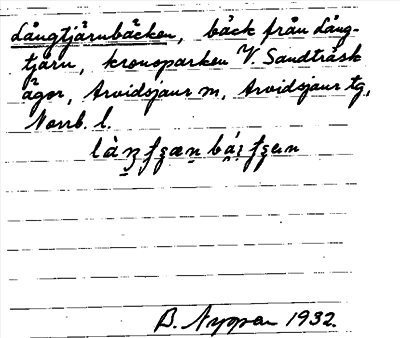 Långtjärnbäcken, bäck från Lång-
tjärn, kronoparken V Sandträsk
ägor, Arvidsjaur sn, Arvidsjaur tg,
Norrb. l.
B. Nyman 1932.